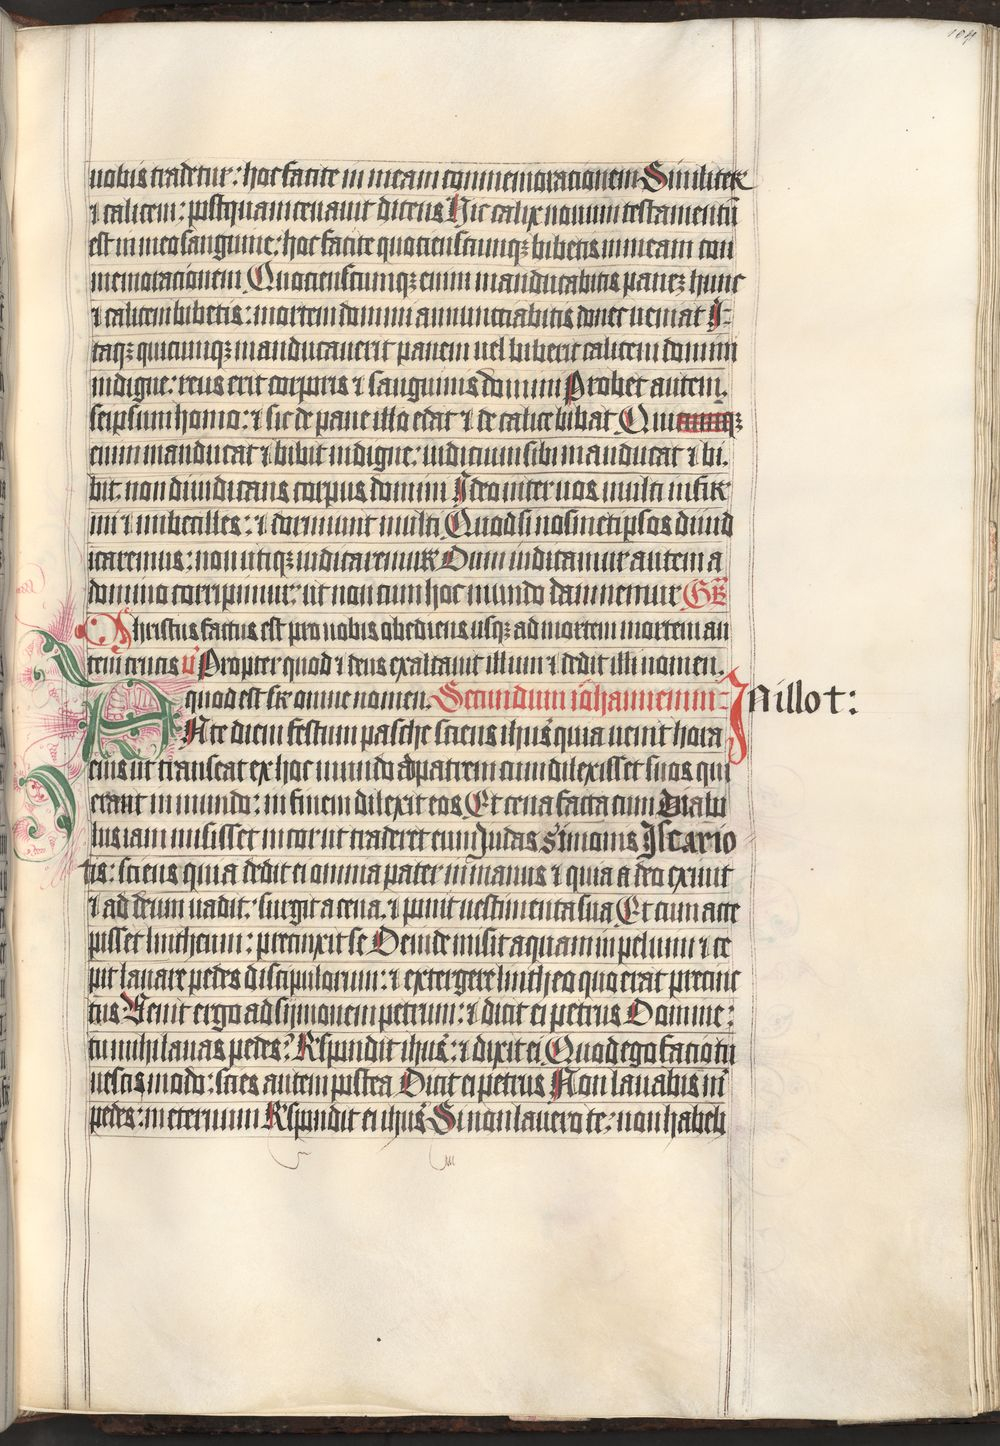 104
uobis tradetur: hoc facite in meam commemoracionem Similiter
⁊ calicem: postquam cenauit dicens Hic calix nouum testamentū
est in meo sanguine: hoc facite quociensc̄umqꝫ bibetis in meam con
memoracionem Quociensc̄umqꝫ enim manducabitis paneꝫ hunc
⁊ calicem bibetis: mortem domini annunctiabitis donec ueniat I-
taqꝫ quicumqꝫ manducauerit panem uel biberit calicem domini
indigne: reus erit corporis ⁊ sanguinis domini Probet autem.
seipsum homo: ⁊ sic de pane illo edat ⁊ de calice bibat Qui cumqꝫ
enim manducat ⁊ bibit indigne: iudicium sibi manducat ⁊ bi.
bit. non diiudicans corpus domini Ideo inter uos multi infir
mi ⁊ imbecilles: ⁊ dormiunt multi Quod si nosmetipsos diiud
icaremus: non utiqꝫ iudicaremur Dum iudicamur autem a
domino corripimur: ut non cum hoc mundo damnemur Gr̄
Christus factus est pro nobis obediens usqꝫ ad mortem mortem au
tem crucis v̄ Propter quod ⁊ deus exaltauit illum ⁊ dedit illi nomen.
quod est sr̄ omne nomen. Secundum iōhannem In illo t:
ANte diem festum pasche sciens ihūs quia uenit hora
eius ut transeat ex hoc mundo ad patrem cum dilexisset suos qui
erant in mundo: in finem dilexit eos Et cena facta cum Diabu
lus iam misisset in cor ut traderet eum Judas Simonis Iscario
tis: sciens quia dedit ei omnia pater in manus ⁊ quia a deo exiuit
⁊ ad deum uadit: surgit a cena. ⁊ ponit uestimenta sua Et cum acce
pisset lintheum: precinxit se Deinde misit aquam in peluim ⁊ ce
pit lauare pedes discipulorum: ⁊ extergere lintheo quo erat precinc
tus Uenit ergo ad symonem petrum: ⁊ dicit ei petrus Domine:
tu michi lauas pedes? Rēspondit ihūs: ⁊ dixit ei Quod ego facio tu
nescis modo: scies autem postea Dicit ei petrus Non lauabis m̄
pedes: in eternum Rēspondit ei ihūs Si non lauero te: non habeb